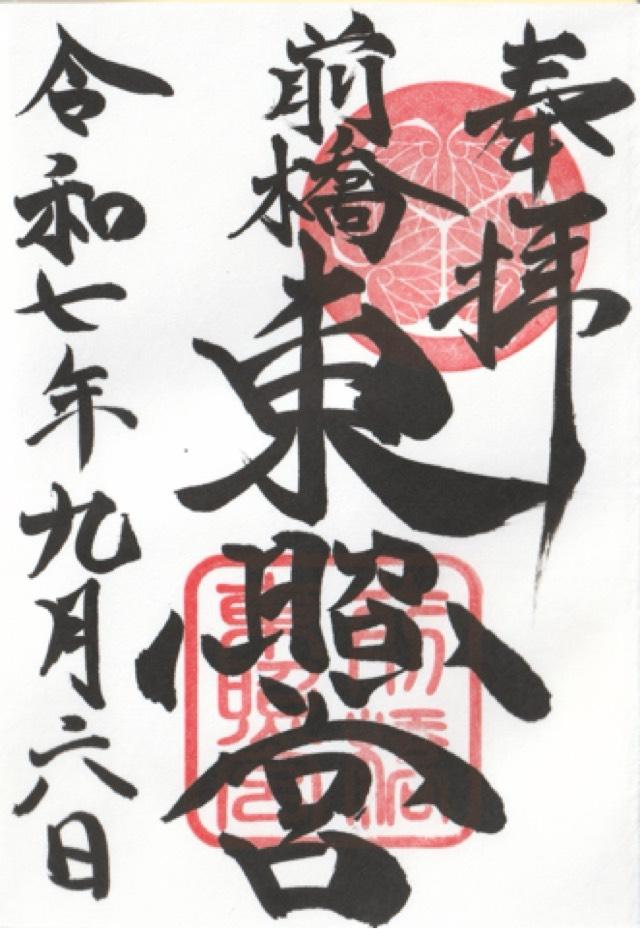 奉拝
前橋
東照宮
令和七年九月六日
前橋
東照宮